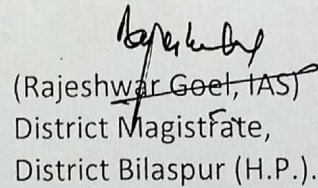 (Rajeshwar Goel, IAS)
District Magistrate,
District Bilaspur (H.P.).